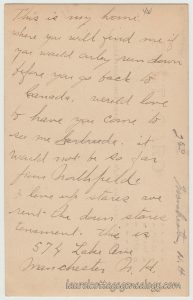 This is my home
where you will find me if
you would only run down
before you go back to
Canada. would love
to have you come to
see me Gertrude. it
would not be so far
from Northfield.
I live up stares we
rent the down stares
tenament. This is
57½ Lake Ave
Manchester N. H.
N. H.
laurelcottagegenealogy.com